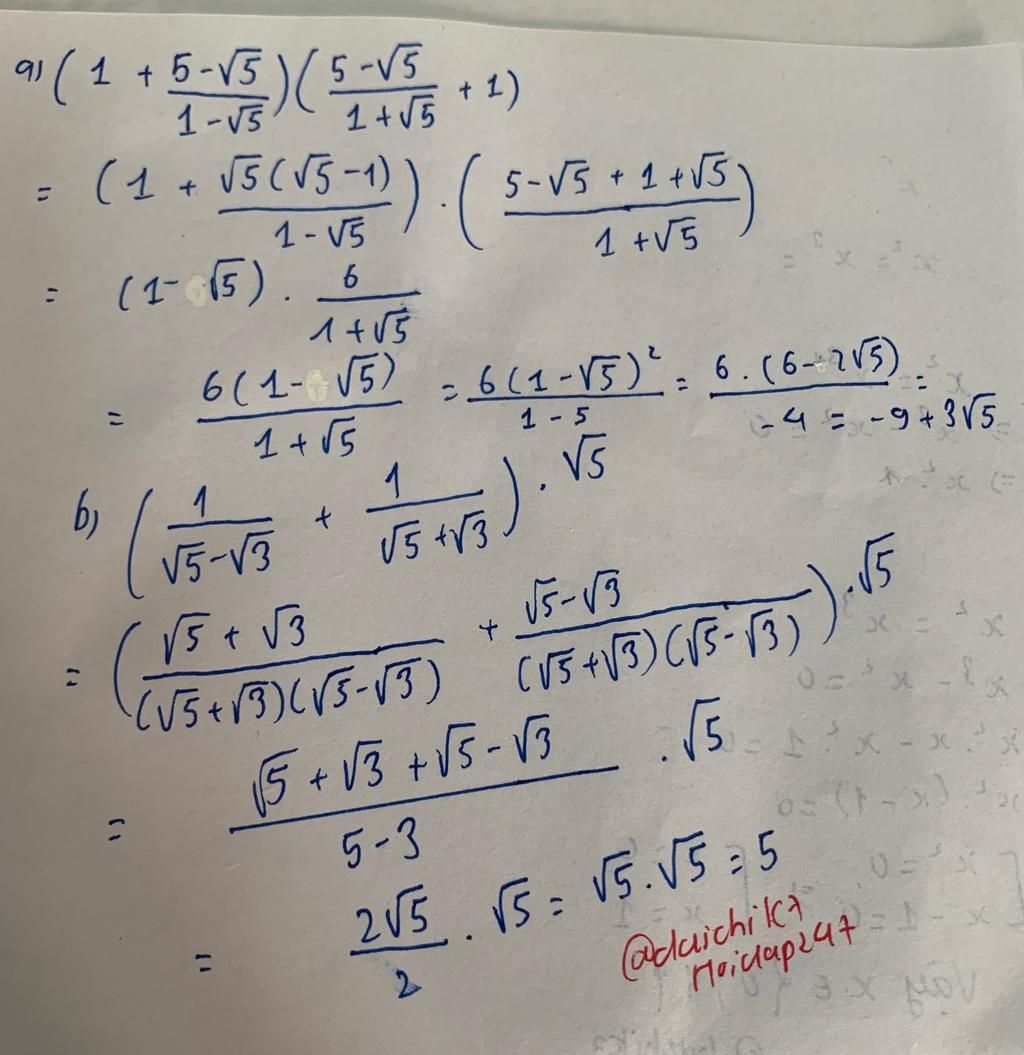 a) (1 + \frac{5-√5}{1-√5})(\frac{5-√5}{1+√5} + 1)
= (1 + \frac{√5(√5-1)}{1-√5}) . (\frac{5-√5+1+√5}{1+√5})
= (1-√5) . \frac{6}{1+√5}
= \frac{6(1-√5)}{1+√5} = \frac{6(1-√5)²}{1-5} = \frac{6.(6-2√5)}{-4} = = -9+3√5
b) (\frac{1}{√5-√3} + \frac{1}{√5+√3}) . √5
= (\frac{√5+√3}{(√5+√3)(√5-√3)} + \frac{√5-√3}{(√5+√3)(√5-√3)}) . √5
= \frac{√5+√3+√5-√3}{5-3} . √5
= \frac{2√5}{2} . √5 = √5.√5 = 5
@daichik7
Hoidap247